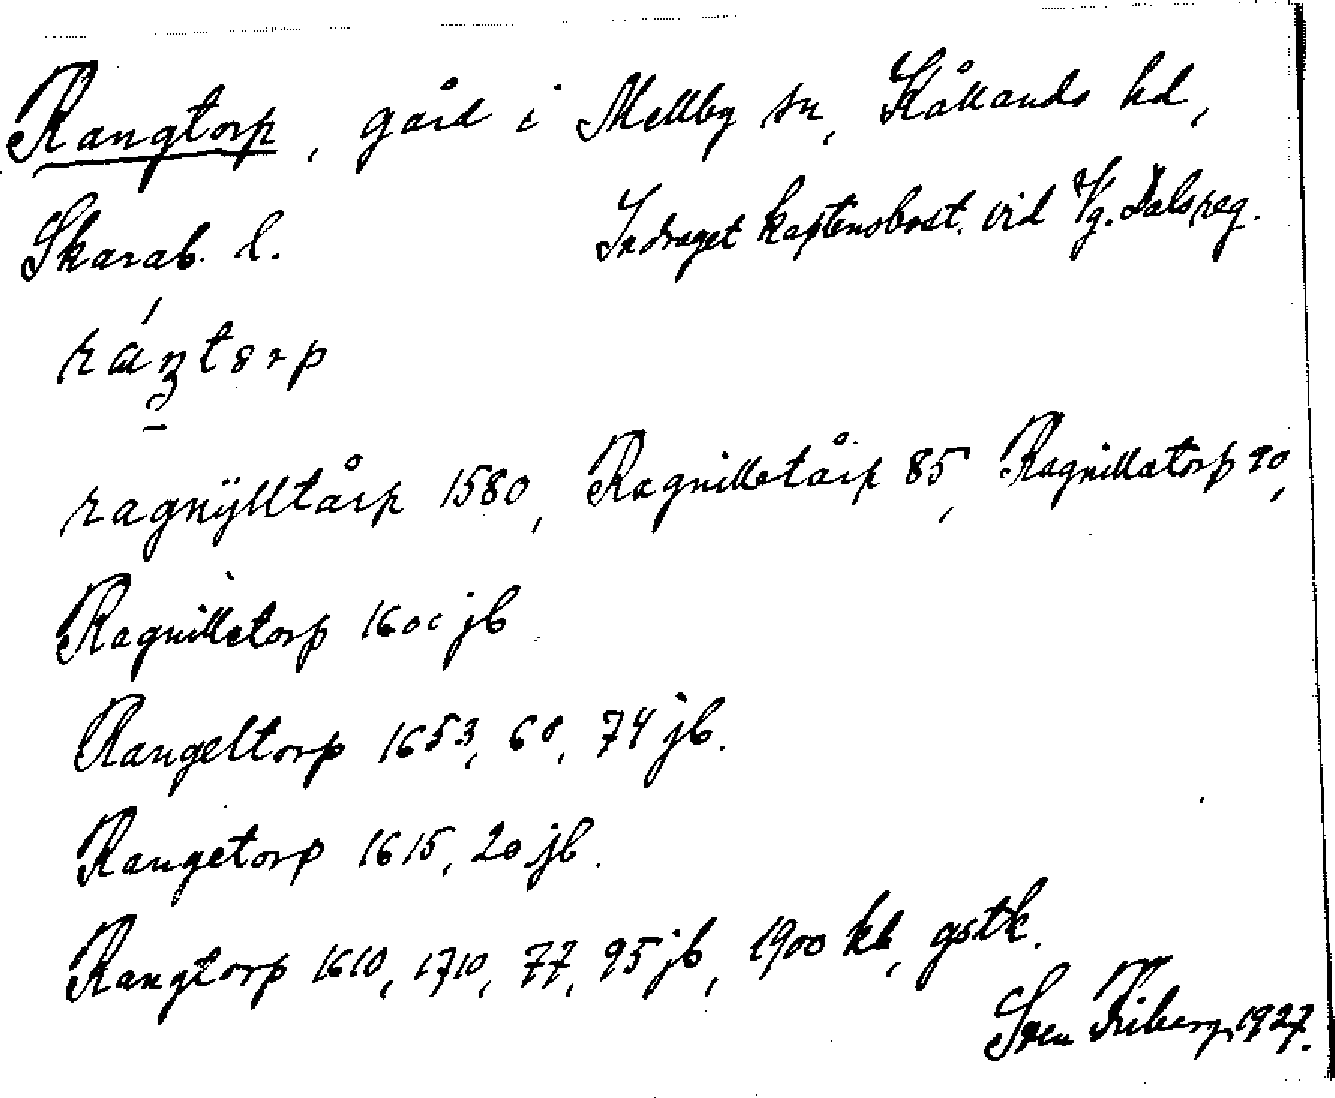 Rangtorp, gård i Mellby sn, Kållands hd,
Skarab. l. Indraget kaptensbost. vid Vg. Dals reg.
ragnÿlltårp 1580, Ragnilletårp 85, Ragnillatorp 90,
Ragnilletorp 1600 jb
Rangeltorp 1653, 60, 74 jb.
Rangetorp 1615, 20 jb.
Rangtorp 1610, 1710, 77, 95 jb, 1900 kb, gstk.
Sven Friberg, 1927.